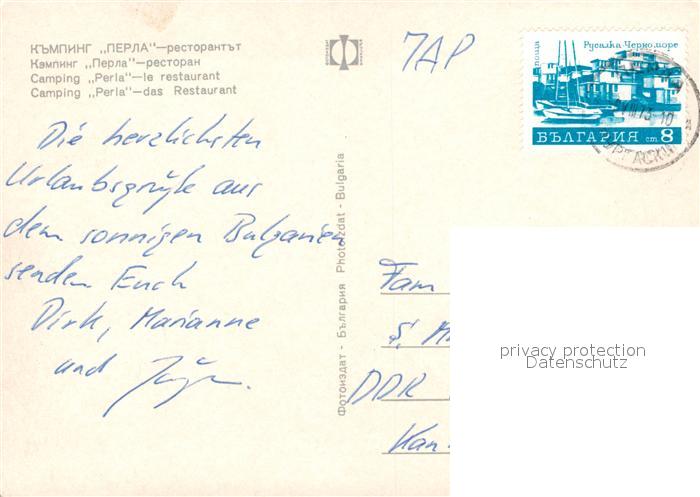 КЪМПИНГ „ПЕРЛА"—ресторантът
Кэмпинг „Перла"—ресторан
Camping „Perla"—le restaurant
Camping „Perla"—das Restaurant
Die herzlichsten
Urlaubsgrüße aus
dem sonnigen Bulgarien
senden Euch
Dirk, Marianne
und
Фотоиздат - България Photoizdat - Bulgaria
ПАР
поща
Русалка Черно море
БЪЛГАРИЯ ст 8
Fam
DDR
privacy protection
Datenschutz